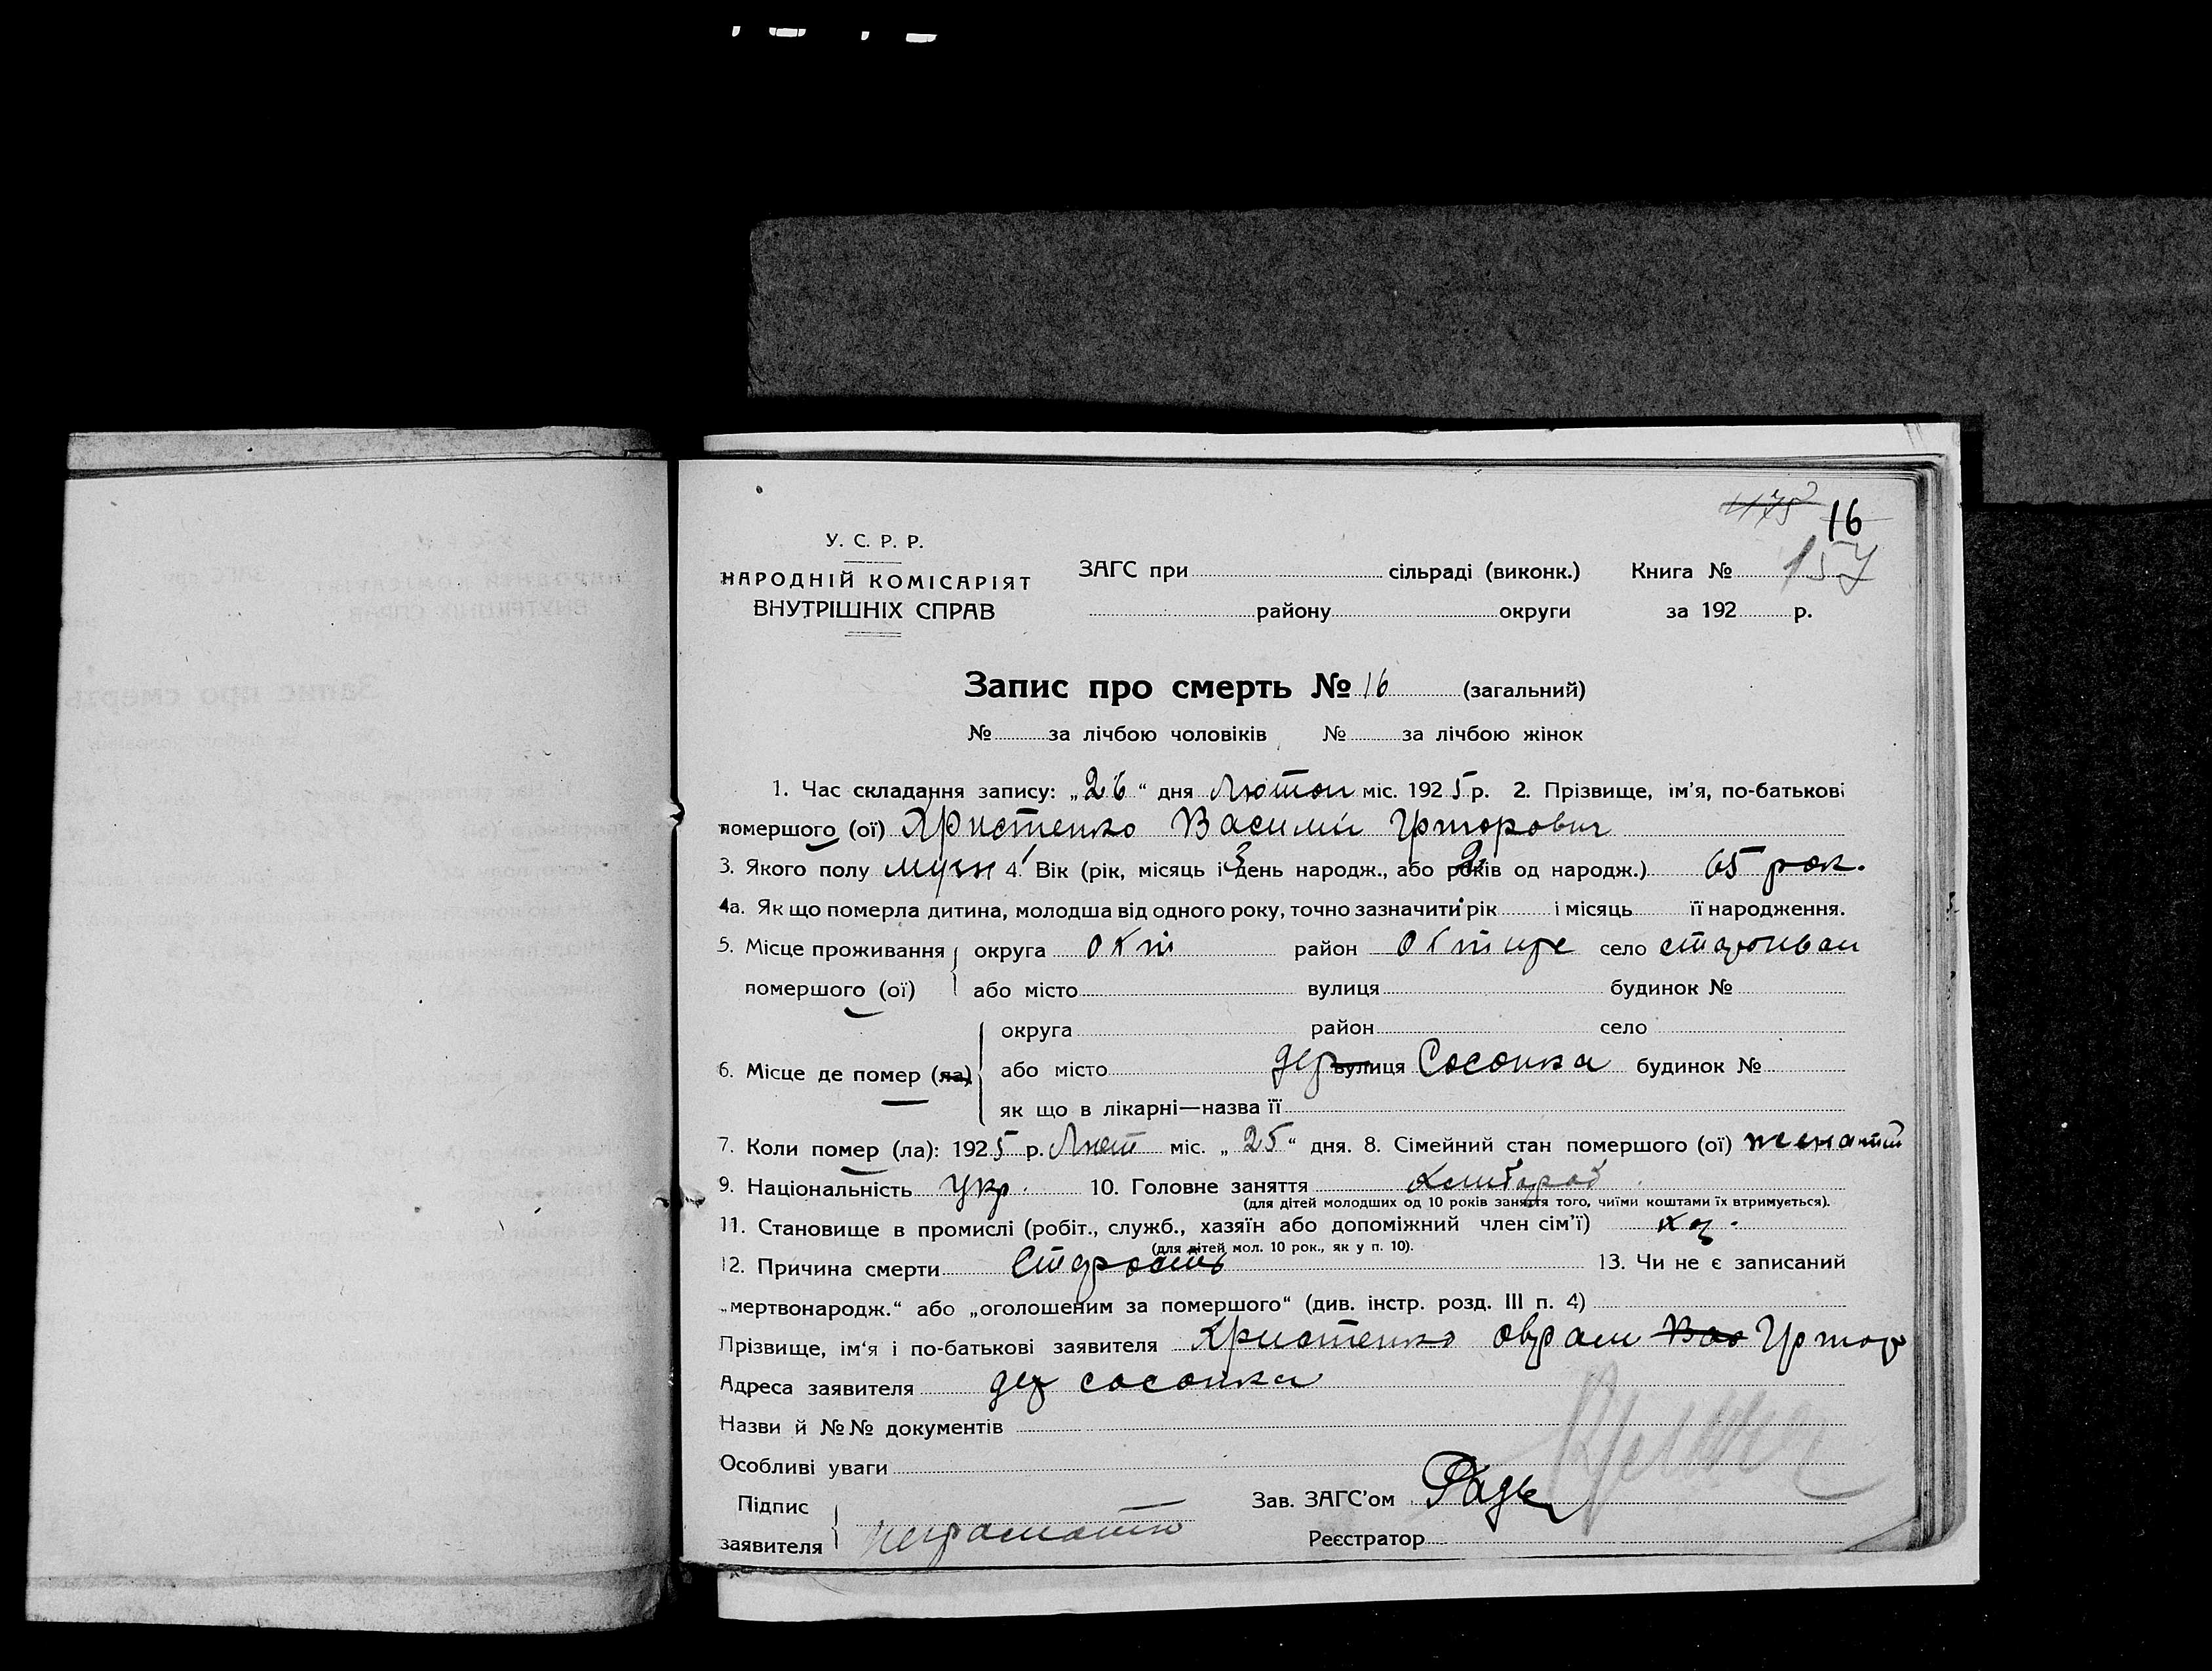 16
157
У. С. Р. Р.
НАРОДНІЙ КОМІСАРІЯТ
ВНУТРІШНІХ СПРАВ
ЗАГС при сільраді (виконк.) Книга №
району округи за 192 р.
Запис про смерть № 16 (загальний)
№ за лічбою чоловіків № за лічбою жінок
1. Час складання запису: „26“ дня міс. 1925 р. 2. Прізвище, ім'я, по-батькові
помершого (ої) Христенко Василий
3. Якого полу муж 4. Вік (рік, місяць і день народж., або років од народж.) 65 рок.
4а. Як що померла дитина, молодша від одного року, точно зазначити рік і місяць її народження.
5. Місце проживання округа Охт район село
помершого (ої) або місто вулиця будинок №
округа район село
6. Місце де помер (ла) або місто дер вулиця Сосонка будинок №
як що в лікарні—назва її
7. Коли помер (ла): 1925 р. Лют міс. „25“ дня. 8. Сімейний стан помершого (ої) женатий
9. Національність Укр. 10. Головне заняття Хлибороб
(для дітей молодших од 10 років заняття того, чиїми коштами їх втримується).
11. Становище в промислі (робіт., служб., хазяїн або допоміжний член сім'ї) хз.
(для дітей мол. 10 рок., як у п. 10).
12. Причина смерти Старость 13. Чи не є записаний
„мертвонародж.“ або „оголошеним за помершого“ (див. інстр. розд. III п. 4)
Прізвище, ім'я і по-батькові заявителя Христенко Оврам Вас
Адреса заявителя дер сосонка
Назви й №№ документів
Особливі уваги
Підпис
заявителя
Зав. ЗАГС'ом
Реєстратор